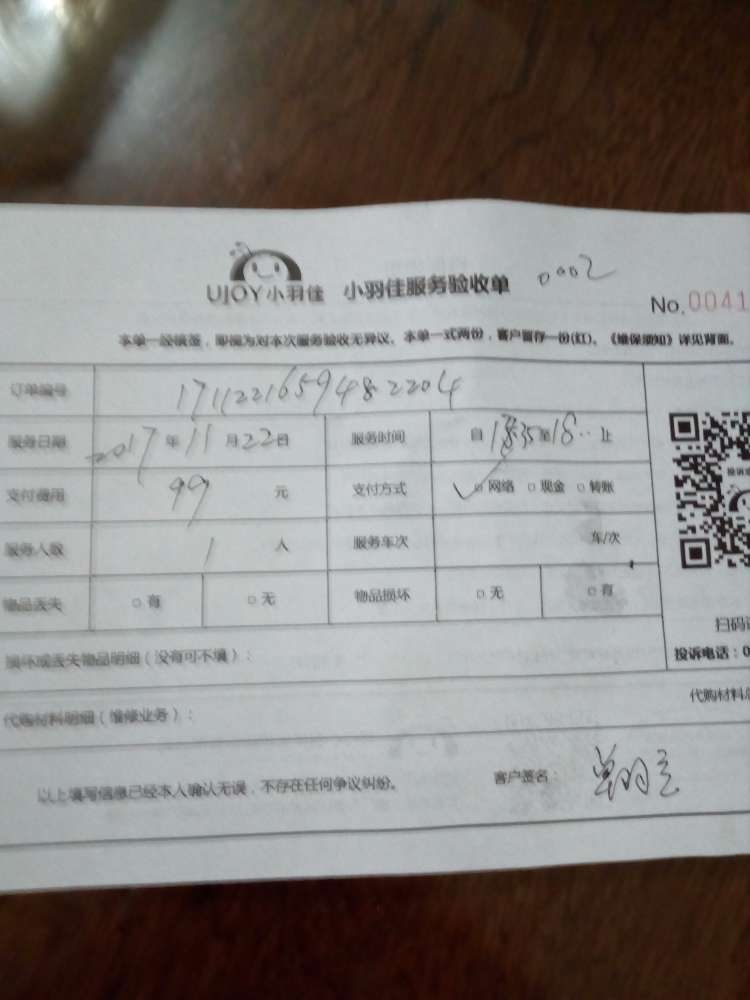 UJOY小羽佳 小羽佳服务验收单 0002
No.0041
本单一经填签，即视为对本次服务验收无异议。本单一式两份，客户留存一份(红)。《维保须知》详见背面。
订单编号 1711221659482204
服务日期 2017年11月22日 服务时间 自 至18 止
支付费用 99 元 支付方式 ✓□网络 □现金 □转账
服务人数 1 人 服务车次 车/次
物品丢失 □有 □无 物品损坏 □无 □有
扫码
损坏或丢失物品明细（没有可不填）： 投诉电话：0
代购材料明细（维修业务）： 代购材料
以上填写信息已经本人确认无误，不存在任何争议纠纷。 客户签名：